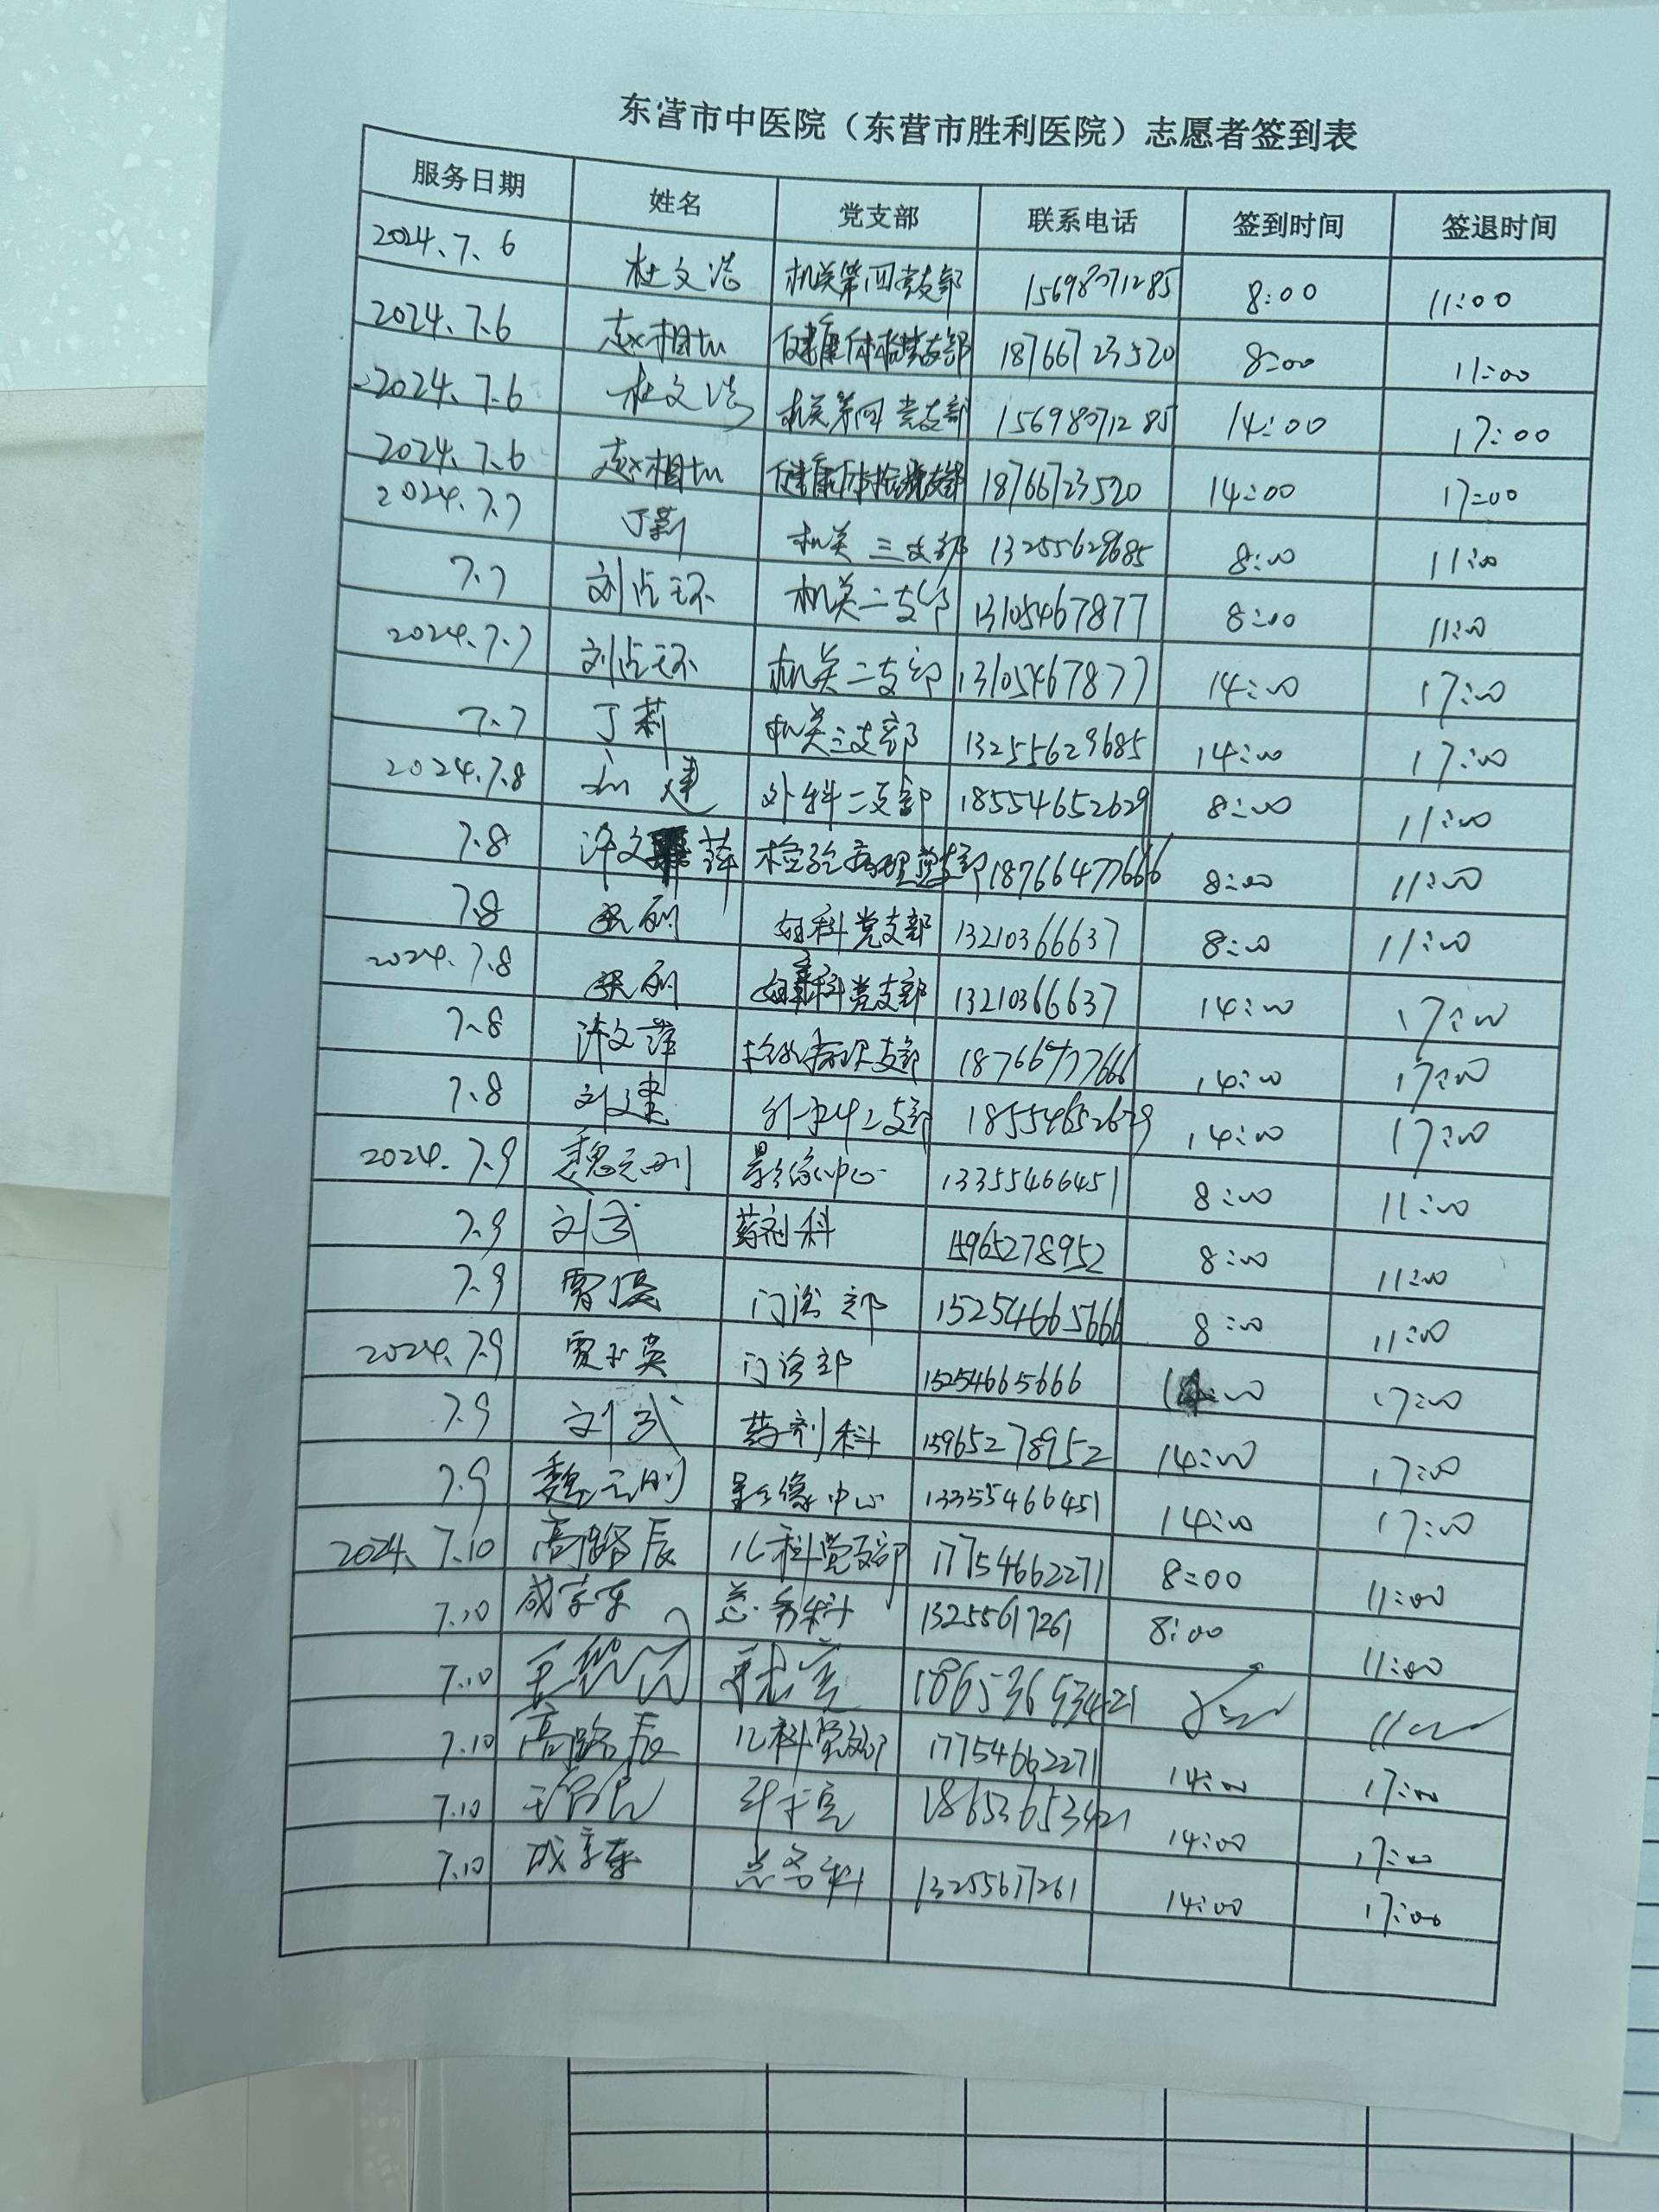 东营市中医院（东营市胜利医院）志愿者签到表
服务日期 姓名 党支部 联系电话 签到时间 签退时间
2024.7.6 杜文浩 机关第四党支部 15698071285 8:00 11:00
2024.7.6 赵相 健康体检党支部 18766723520 8:00 11:00
2024.7.6 杜文浩 机关第四党支部 15698071285 14:00 17:00
2024.7.6 赵相 健康体检党支部 18766723520 14:00 17:00
2024.7.7 丁莉 机关三支部 13255629685 8:00 11:00
7.7 刘占环 机关二支部 13105467877 8:00 11:00
2024.7.7 刘占环 机关二支部 13105467877 14:00 17:00
7.7 丁莉 机关三支部 13255629685 14:00 17:00
2024.7.8 刘建 外科二支部 18554652629 8:00 11:00
7.8 许文萍 检验病理党支部 18766477666 8:00 11:00
7.8 妇科党支部 13210366637 8:00 11:00
2024.7.8 妇科党支部 13210366637 14:00 17:00
7.8 许文萍 检验病理支部 18766477666 14:00 17:00
7.8 刘建 外科二支部 18554652629 14:00 17:00
2024.7.9 魏元刚 影像中心 13355466451 8:00 11:00
7.9 刘武 药剂科 15965278952 8:00 11:00
7.9 贾 门诊部 15254665666 8:00 11:00
2024.7.9 贾玉英 门诊部 15254665666 14:00 17:00
7.9 刘武 药剂科 15965278952 14:00 17:00
7.9 魏元刚 影像中心 13355466451 14:00 17:00
2024.7.10 高路辰 儿科党支部 17754662271 8:00 11:00
7.10 总务科 13255617261 8:00 11:00
7.10 王 18653653421
7.10 高路辰 儿科党支部 17754662271 14:00 17:00
7.10 王 18653653421 14:00 17:00
7.10 总务科 13255617261 14:00 17:00